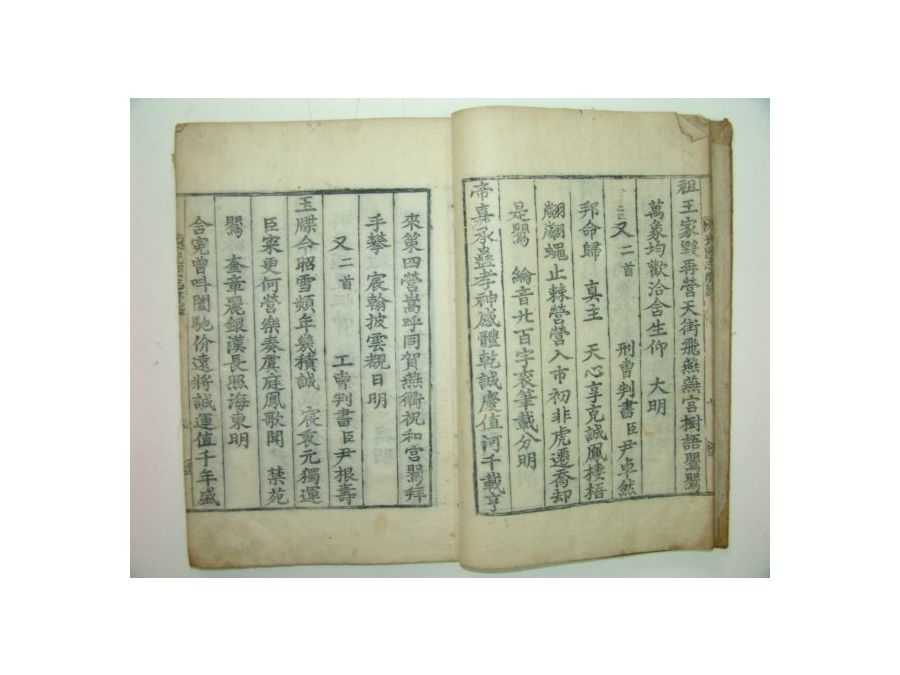 祖王家毀再營天街飛燕燕宮樹語鸎鸎
萬象均歡洽含生仰 大明
又二首 刑曹判書臣尹卓然
邦命歸 真主 天心享克誠鳳棲梧
翩翩蠅止棘營營入市初非虎遷喬却
是鸎 綸音廿百字衮筆載分明
帝嘉承蠱孝神感體乾誠慶值河千載亨
來策四營嵩呼同賀燕衢祝和宮鸎拜
手攀 宸翰披雲覩日明
又二首 工曹判書臣尹根壽
玉牒今昭雪頻年幾積誠 宸衷元獨運
臣寀更何營樂奏虞庭鳳歌聞 禁苑
鸎 奎章麗銀漢長照海東明
含寃曾叫闔馳价遠將誠運值千年盛